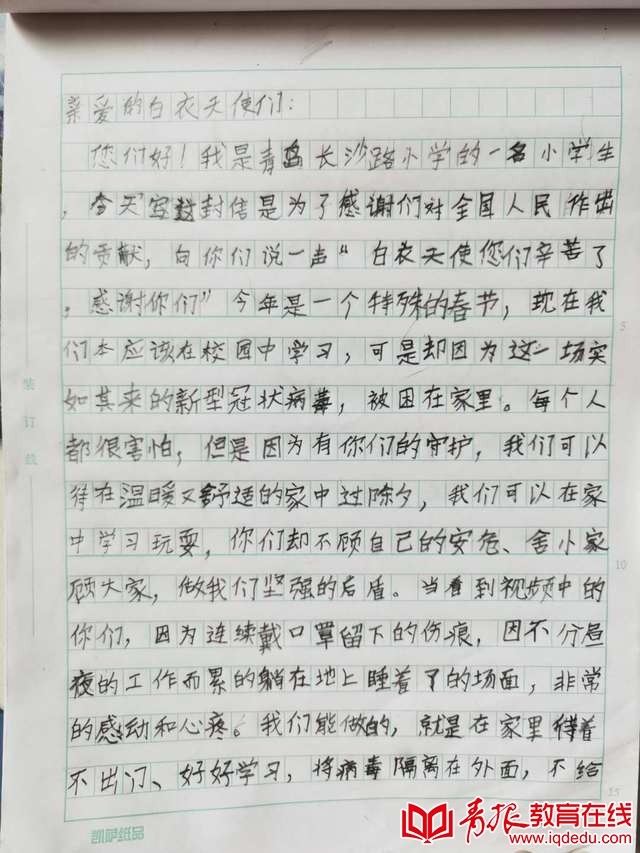 亲爱的白衣天使们：
您们好！我是青岛长沙路小学的一名小学生
，今天写这封信是为了感谢们对全国人民作出
的贡献，向你们说一声“白衣天使您们辛苦了
，感谢你们”今年是一个特殊的春节，现在我
们本应该在校园中学习，可是却因为这一场突
如其来的新型冠状病毒，被困在家里。每个人
都很害怕，但是因为有你们的守护，我们可以
待在温暖又舒适的家中过除夕，我们可以在家
中学习玩耍，你们却不顾自己的安危、舍小家
顾大家，做我们坚强的后盾。当看到视频中的
你们，因为连续戴口罩留下的伤痕，因不分昼
夜的工作而累的躺在地上睡着了的场面，非常
的感动和心疼。我们能做的，就是在家里待着
不出门、好好学习，将病毒隔离在外面，不给
装订线
5
10
15
凯萨纸品
青报教育在线
www.iqdedu.com